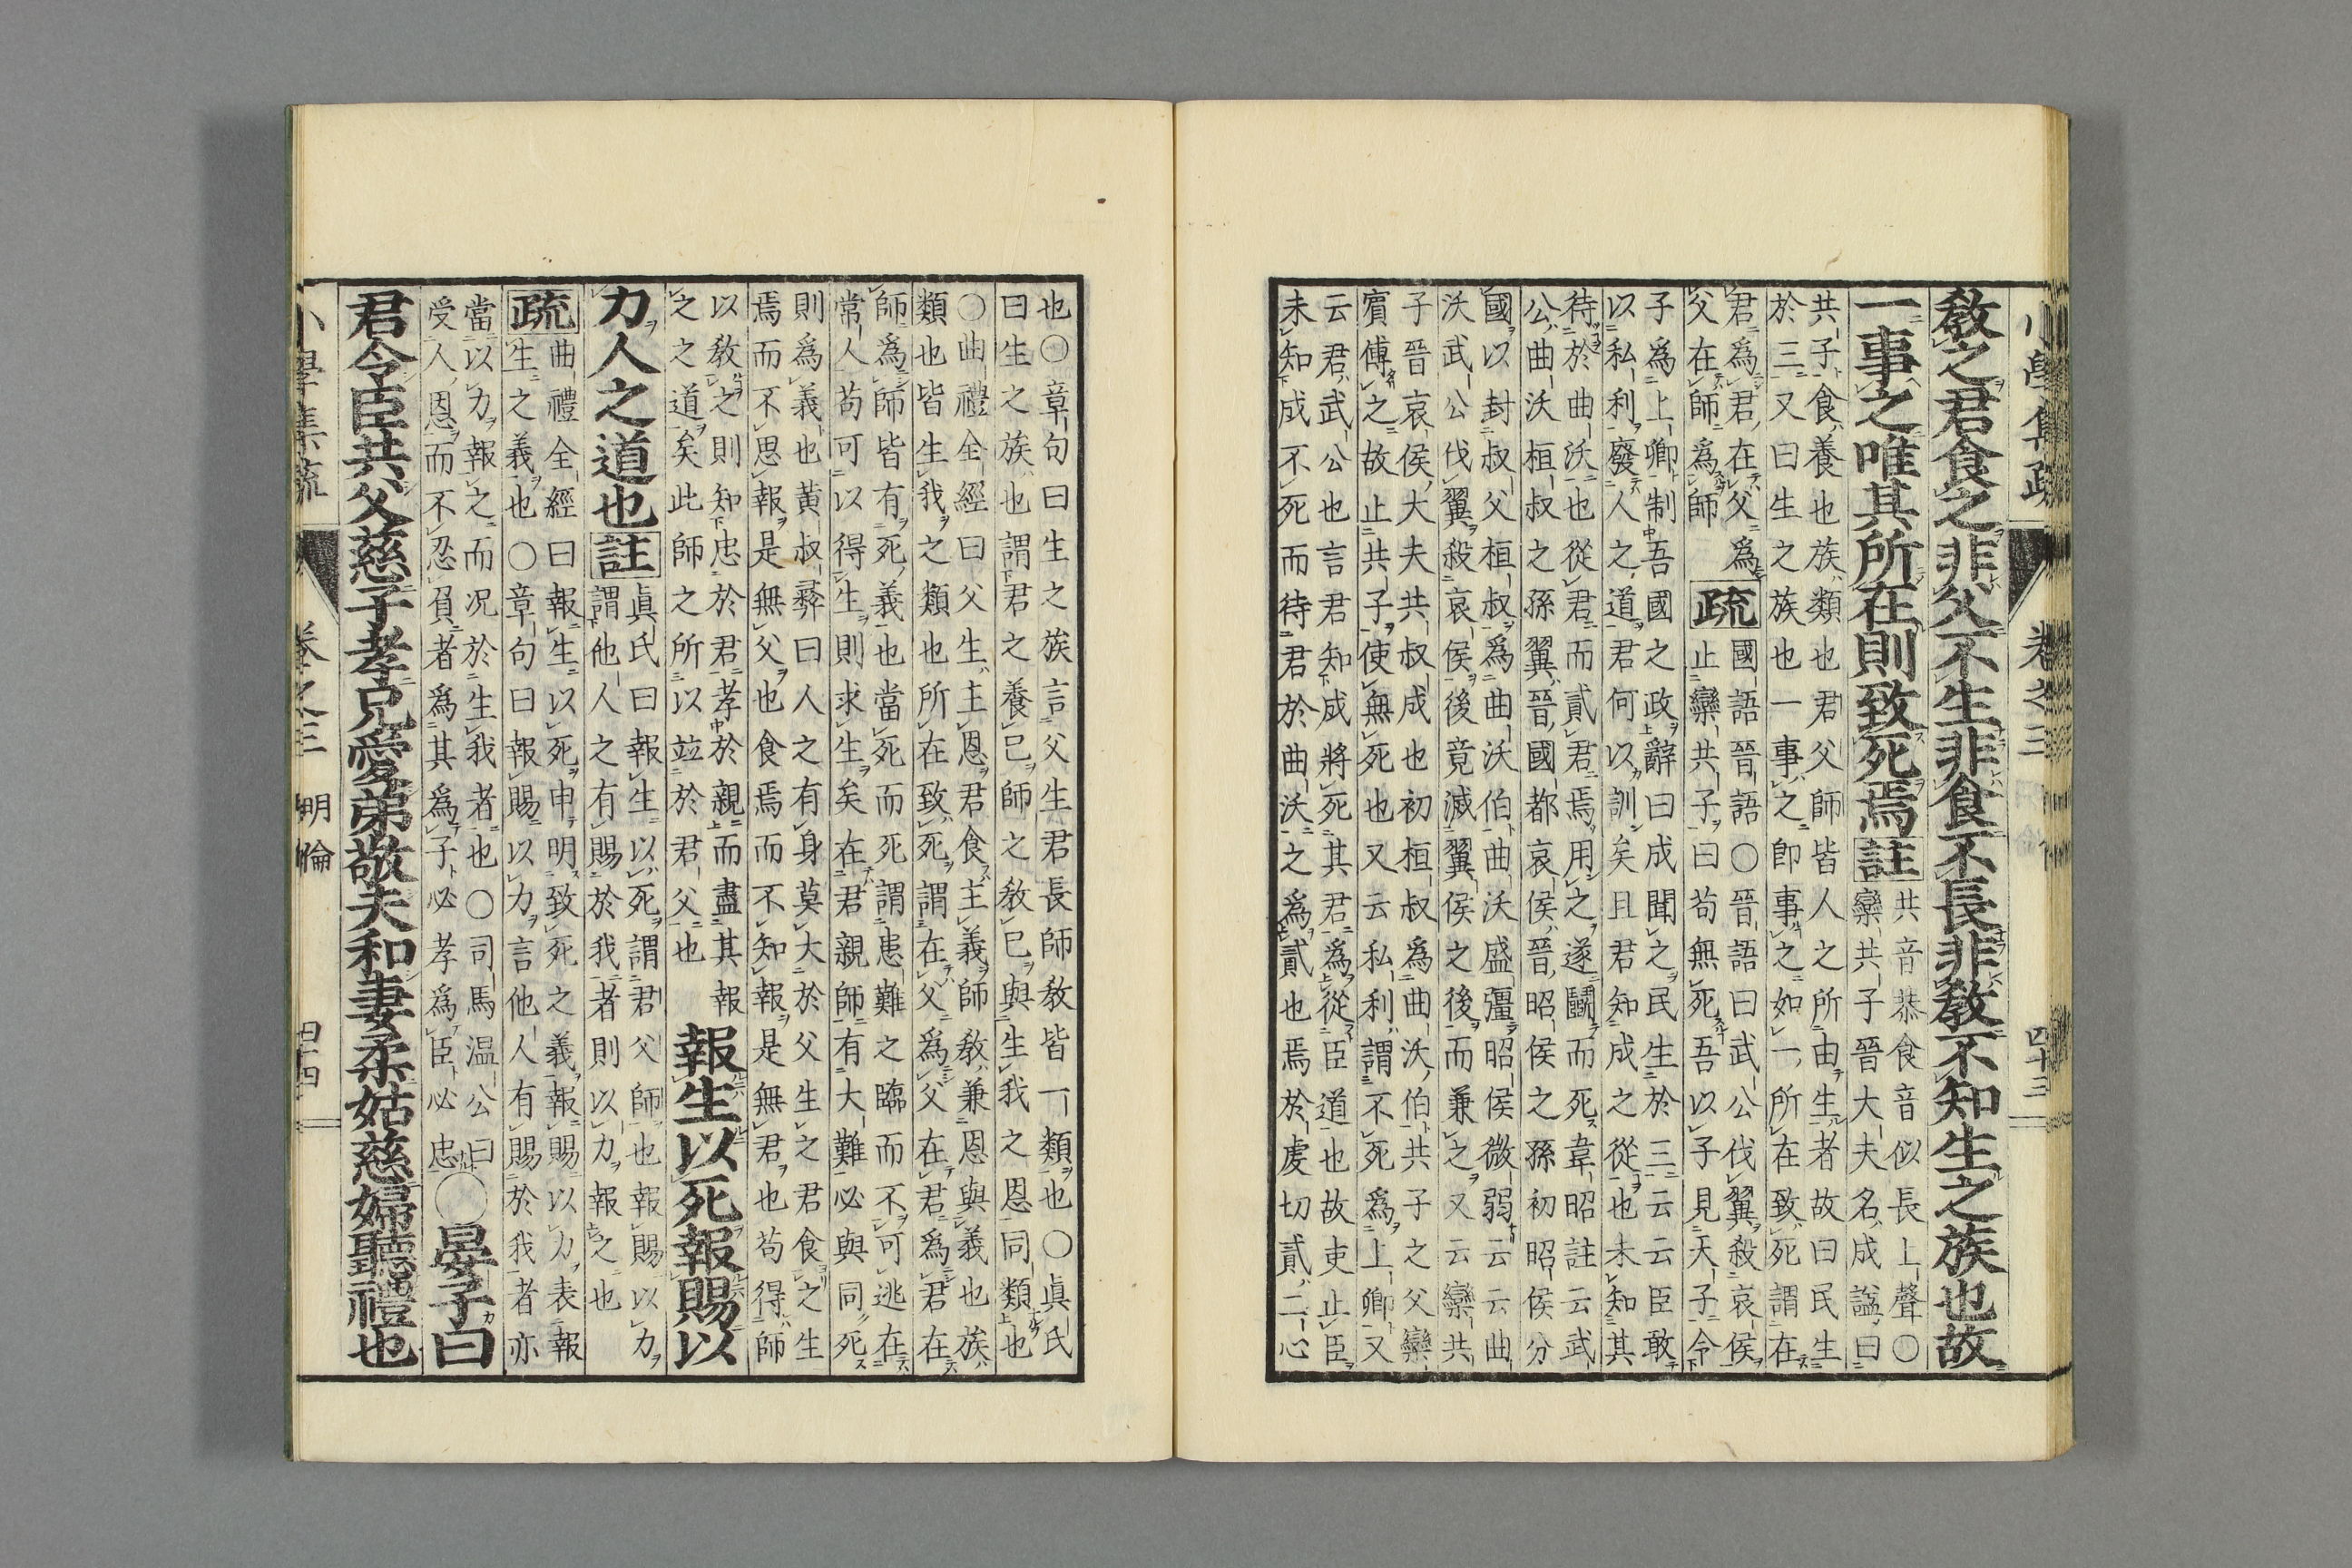 敎之君食之非父不生非食不長非敎不知生之族也故
一事之唯其所在則致死焉註
共音恭食音似長上聲〇
欒共子晉大夫名成諡曰
共子食養也族類也君父師皆人之所由生者故曰民生
於三又曰生之族也一事之卽事之如一所在致死謂在
君爲君在父爲
父在師爲師
疏
國語晉語〇晉語曰武公伐翼殺哀侯
止欒共子曰苟無死吾以子見天子令
子爲上卿制吾國之政辭曰成聞之民生於三云云臣敢
以私利廢人之道君何以訓矣且君知成之從也未知其
待於曲沃也從君而貳君焉用之遂鬭而死韋昭註云武
公曲沃桓叔之孫翼晉國都哀侯晉昭侯之孫初昭侯分
國以封叔父桓叔爲曲沃伯曲沃盛彊昭侯微弱云云曲
沃武公伐翼殺哀侯後竟滅翼侯之後而兼之又云欒共
子晉哀侯大夫共叔成也初桓叔爲曲沃伯共子之父欒
賓傅之故止共子使無死也又云私利謂不死爲上卿又
云君武公也言君知成將死其君爲從臣道也故吏止臣
未知成不死而待君於曲沃之爲貳也焉於虔切貳二心
也〇章句曰生之族言父生君長師敎皆一類也〇眞氏
曰生之族也謂君之養己師之敎己與生我之恩同類也
〇曲禮全經曰父生主恩君食主義師敎兼恩與義也族
類也皆生我之類也所在致死謂在父爲父在君爲君在
師爲師皆有死義也當死而死謂患難之臨而不可逃在
常人苟可以得生則求生矣在君親師有大難必與同死
則爲義也黄叔彛曰人之有身莫大於父生之君食之生
焉而不思報是無父也食焉而不知報是無君也苟得師
以敎之則知忠於君孝於親而盡其報
之之道矣此師之所以竝於君父也
報生以死報賜以
力人之道也註
眞氏曰報生以死謂君父師也報賜以力
謂他人之有賜於我者則以力報之也
疏
曲禮全經曰報生以死申明致死之義報賜以力表報
生之義也〇章句曰報賜以力言他人有賜於我者亦
當以力報之而況於生我者也〇司馬温公曰
受人恩而不忍負者爲其爲子必孝爲臣必忠
〇晏子曰
君令臣共父慈子孝兄愛弟敬夫和妻柔姑慈婦聽禮也
小學集疏 卷之三 明倫 四十四